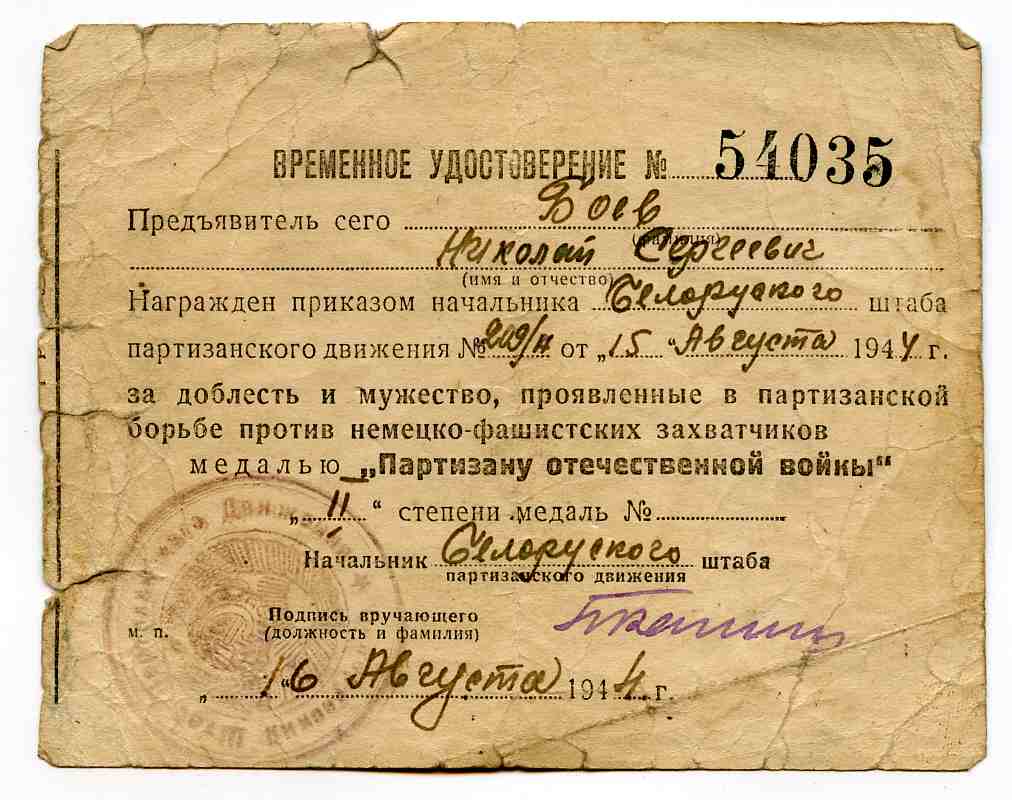 ВРЕМЕННОЕ УДОСТОВЕРЕНИЕ № 54035
Предъявитель сего Боев
(фамилия)
Николай Сергеевич
(имя и отчество)
Награжден приказом начальника Белоруского штаба
партизанского движения № 209/н от „15" Августа 1944 г.
за доблесть и мужество, проявленные в партизанской
борьбе против немецко-фашистских захватчиков
медалью „Партизану отечественной войны"
„II" степени медаль №
Начальник Белоруского штаба
партизанского движения
Подпись вручающего
м. п. (должность и фамилия)
„16" Августа 1944 г.